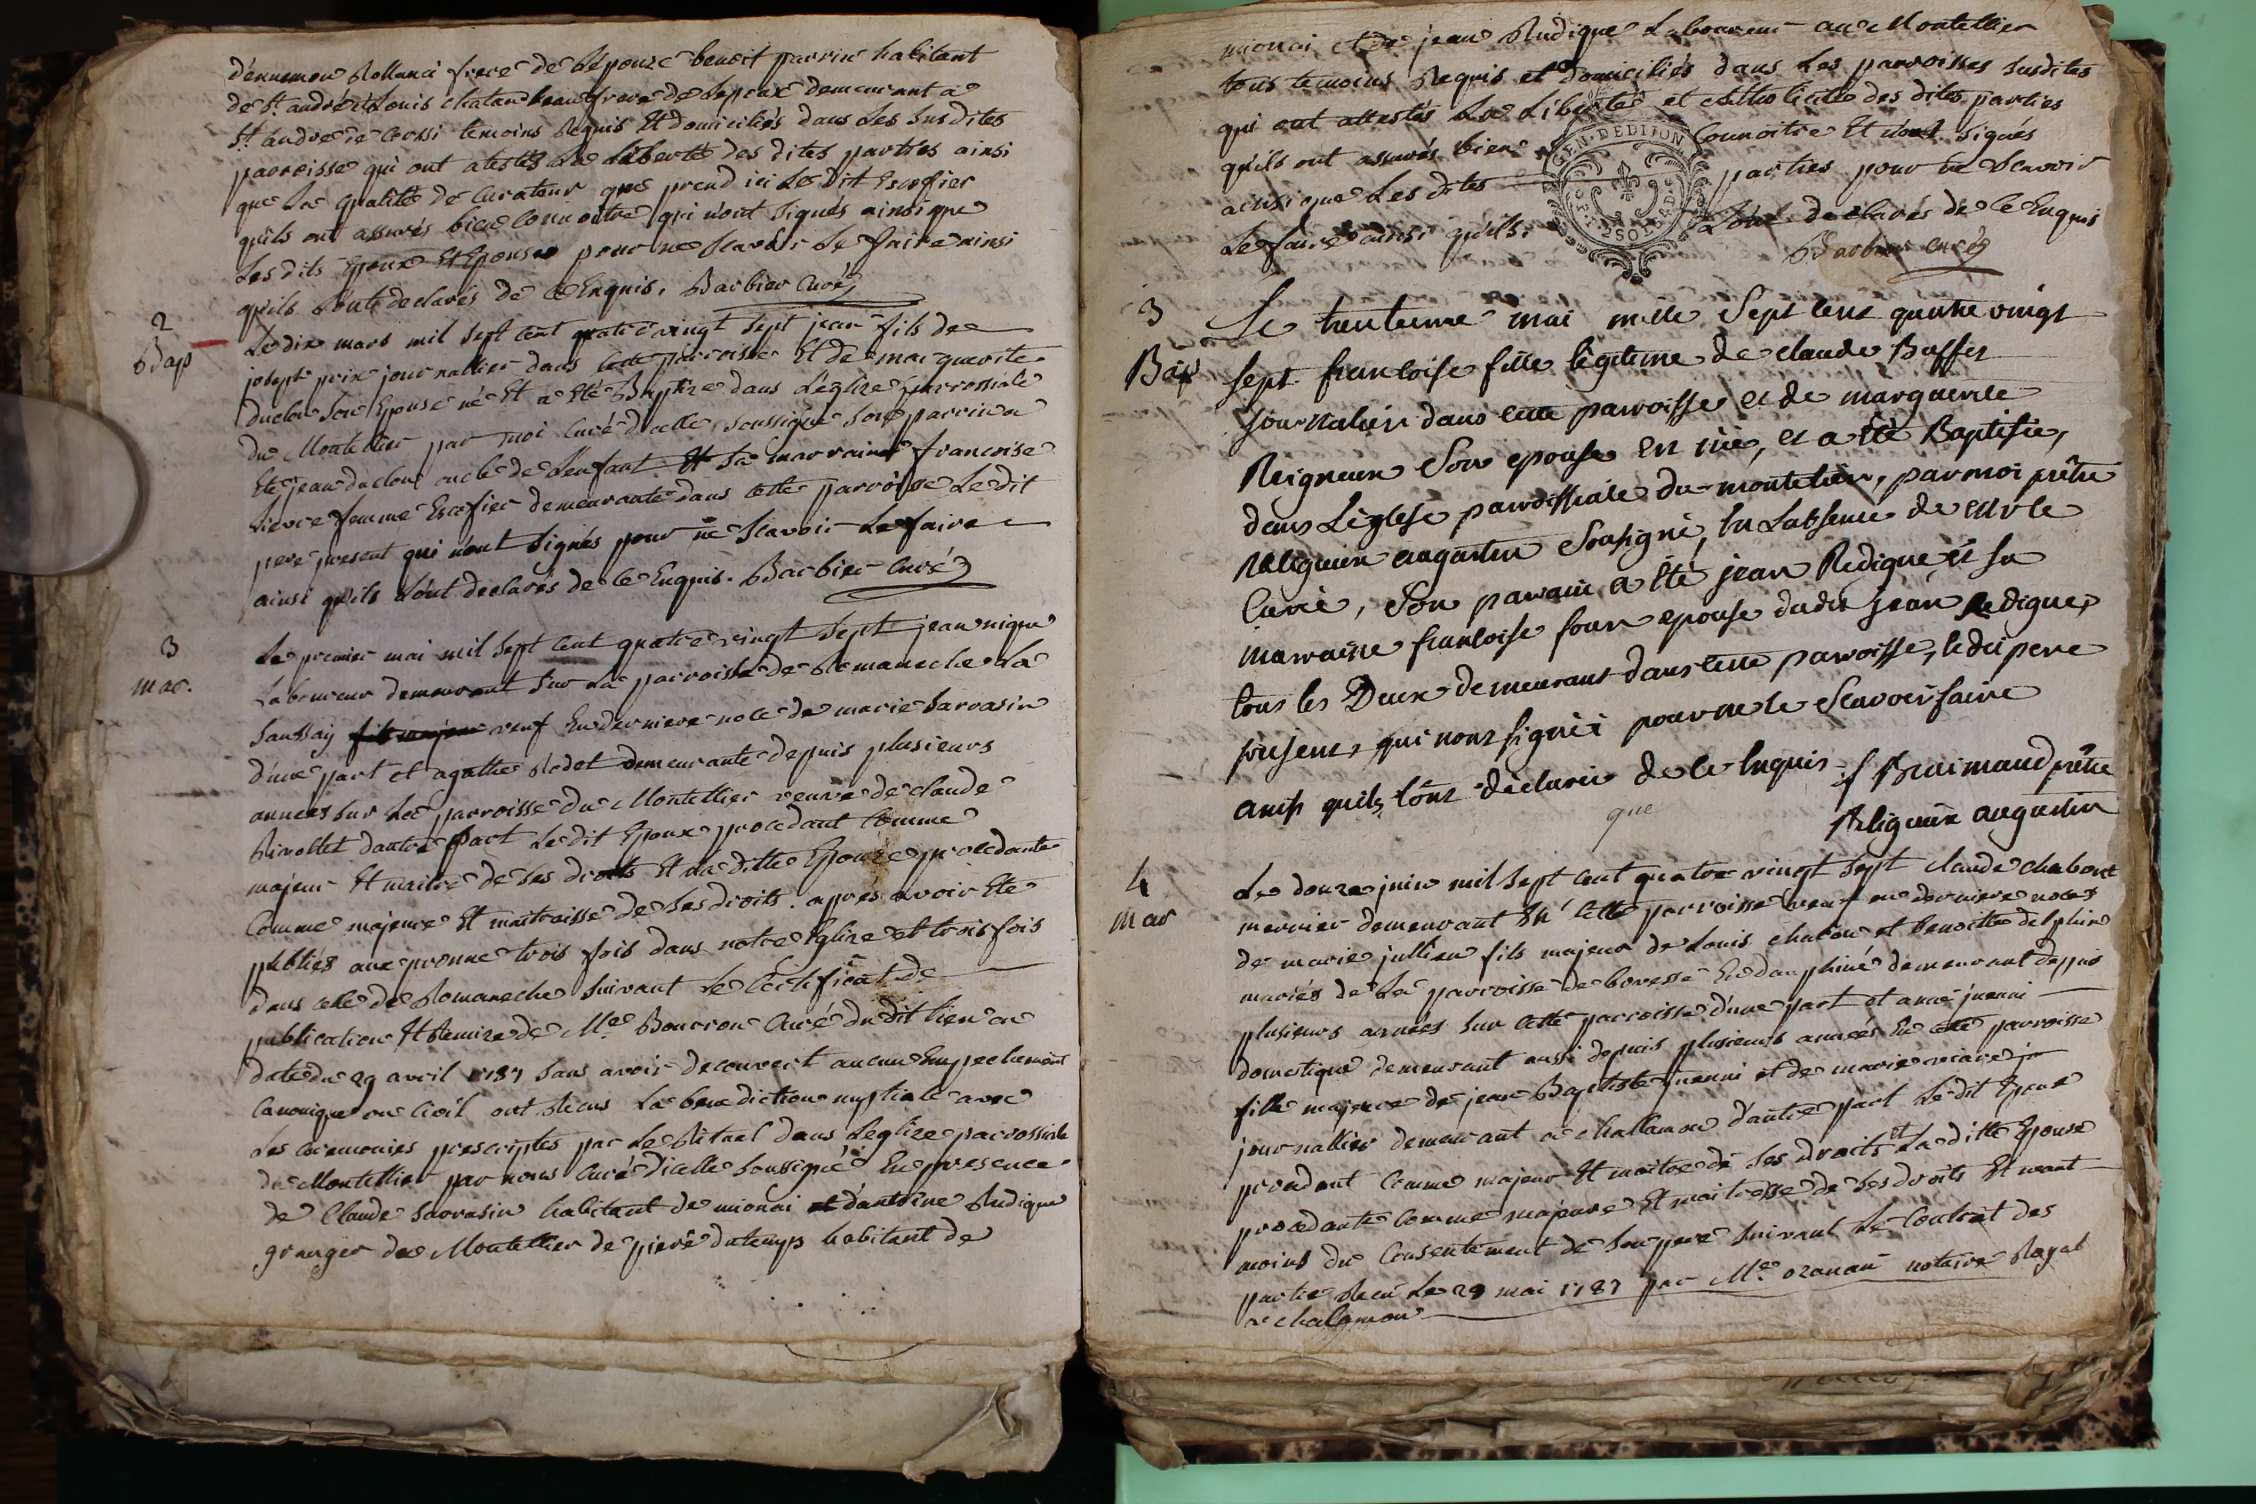 d'ennemon Rolland frere de Lepouze benoit parrin habitant
de St. andre et Louis chatan beau frere de Lepouze demeurant a
St. andre de Corsi temoins Requis Et domiciliés dans Les susdites
parroisse qui ont atestés La Liberté des dites parties ainsi
que La qualité de Curateur que prend ici Le dit Escofier
qu'ils ont assurés bien Connoitre qui n'ont signés ainsi que
Les dits Epoux Et Epouse pour ne scavoir Le faire ainsi
qu'ils L'ont declarés de ce Enquis. Barbier Curé
2
Bap
Le dix mars mil sept cent quatre vingt sept jean fils de
joseph prix journallier dans cette parroisse Et de marguerite
duclou son Epouse né Et a Eté Baptize dans L'eglize parrossiale
du Montellier par moi Curé d'icelle soussigné son parrin a
Eté jean duclou oncle de L'enfant Et sa marraine francoise
Lievre femme Escofier demeurante dans cette parroisse Le dit
pere present qui n'ont signés pour ne scavoir Le faire
ainsi qu'ils L'ont declarés de ce Enquis. Barbier Curé
3
mar.
Le premier mai mil sept cent quatre vingt sept jean nique
Laboureur demeurant sur La parroisse de Romaneche La
saussay fils majeur veuf En derniere noce de marie sarrasin
d'une part et agathe Rodet demeurante depuis plusieurs
années sur La parroisse du Montellier veuve de claude
Rivollet dautre part Le dit Epoux procedant comme
majeur Et maitre de ses droits Et La ditte Epouze procedante
Comme majeure Et maitraisse de ses droits. apres avoir Eté
publiés aux pronne trois fois dans notre Eglize et trois fois
dans celle de Romaneche suivant Le Certificat de
publication Et Remize de Me. Bourron Curé du dit Lieu en
date du 29 avril 1787 sans avoir decouvert aucun Empechement
Canonique ou Civil ont Recus La benediction nuptiale avec
Les ceremonies prescriptes par Le Rituel dans Leglize parrossiale
du Montellier par nous Curé d'icelle soussigné En presence
de Claude sarrasin habitant de mionai et d'antoine Rudique
granger du Montellier de pierre dutemps habitant de
mionai et de jean Rudique Laboureur au Montellier
tous temoins Requis et domiciliés dans Les parroisses susdites
qui ont attestés La Liberté et Catholicité des dites parties
qu'ils ont assurés bien Connoitre Et n'ont signés
ainsi que Les dites parties pour ne scavoir
Le faire ainsi qu'ils L'ont declarés de ce Enquis
Barbier curé
GEN. DE DIJON
3
Bap
Le trentieme mai mille Sept cent quatre vingt
sept francoise fille légitime de claude Buffet
journalier dans cette parroisse et de marguerite
Reigneux Son epouse est née, et a été Baptisée,
dans L'église parroissiale du montelier, par moi prêtre
Religieux augustin Soussigné, en L'absence de Mr le
Curé, Son parrain a été jean Redigue et sa
marraine francoise four epouse dudit jean Redigue,
tous les Deux demeurant dans cette parroisse, le dit pere
present, qui n'ont signé pour ne le Scavoir faire
ainsi qu'ils l'ont déclaré de ce Enquis f Raimand prêtre
que
Religieux augustin
4
mar
Le douze juin mil sept cent quatre vingt sept claude chabout
mernier demeurant En cette parroisse veuf en derniere noces
de marie jullien fils majeur de Louis chabou et benoitte delphin
mariés de La parroisse de boresse En dauphiné demeurant depuis
plusieurs années sur cette parroisse d'une part et anne juenni
domestique demeurant aussi depuis plusieurs années En cette parroisse
fille majeure de jean Baptiste juenni et de marie
journallier demeurant a challamon d'autre part Le dit Epoux
procedant comme majeur Et maitre de ses droits et La ditte Epouse
procedante comme majeure Et maitresse de ses droits Et neant
moins du Consentement de son pere suivant Le Contrat des
partie Recu Le 29 mai 1787 par Me. ozanan notaire Royal
a chalamon